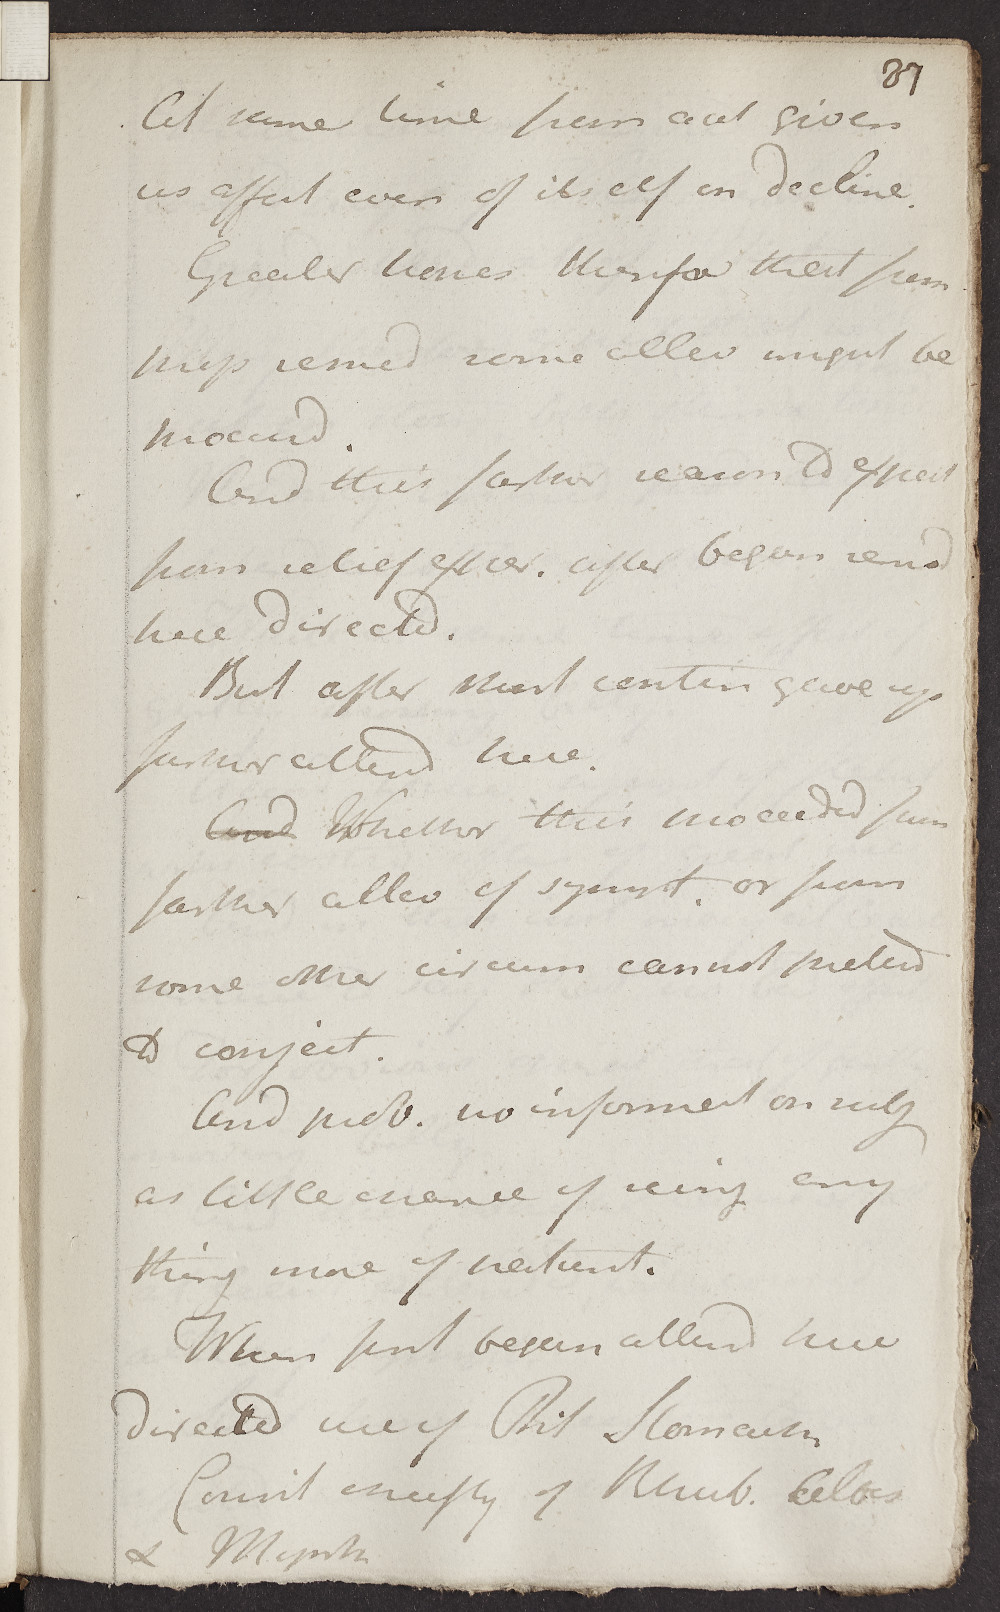 87
At same time from acct given
us affect even of itself on decline.
Greater hopes therefor that from
prop remed some allev might be
procurd.
And this farther reason to expect
from relief exper. after began remd
here directd.
But after short contin gave up
farther attend here.
And Whether this proceeded from
farther allev of sympt. or from
some other circum cannot pretend
to conject.
And prob. no information on subj
as little chance of seing any
thing more of patient.
When first began attend here
directed use of Pil Stomach
Consist chiefly of Rhub. Aloes
& Myrrh